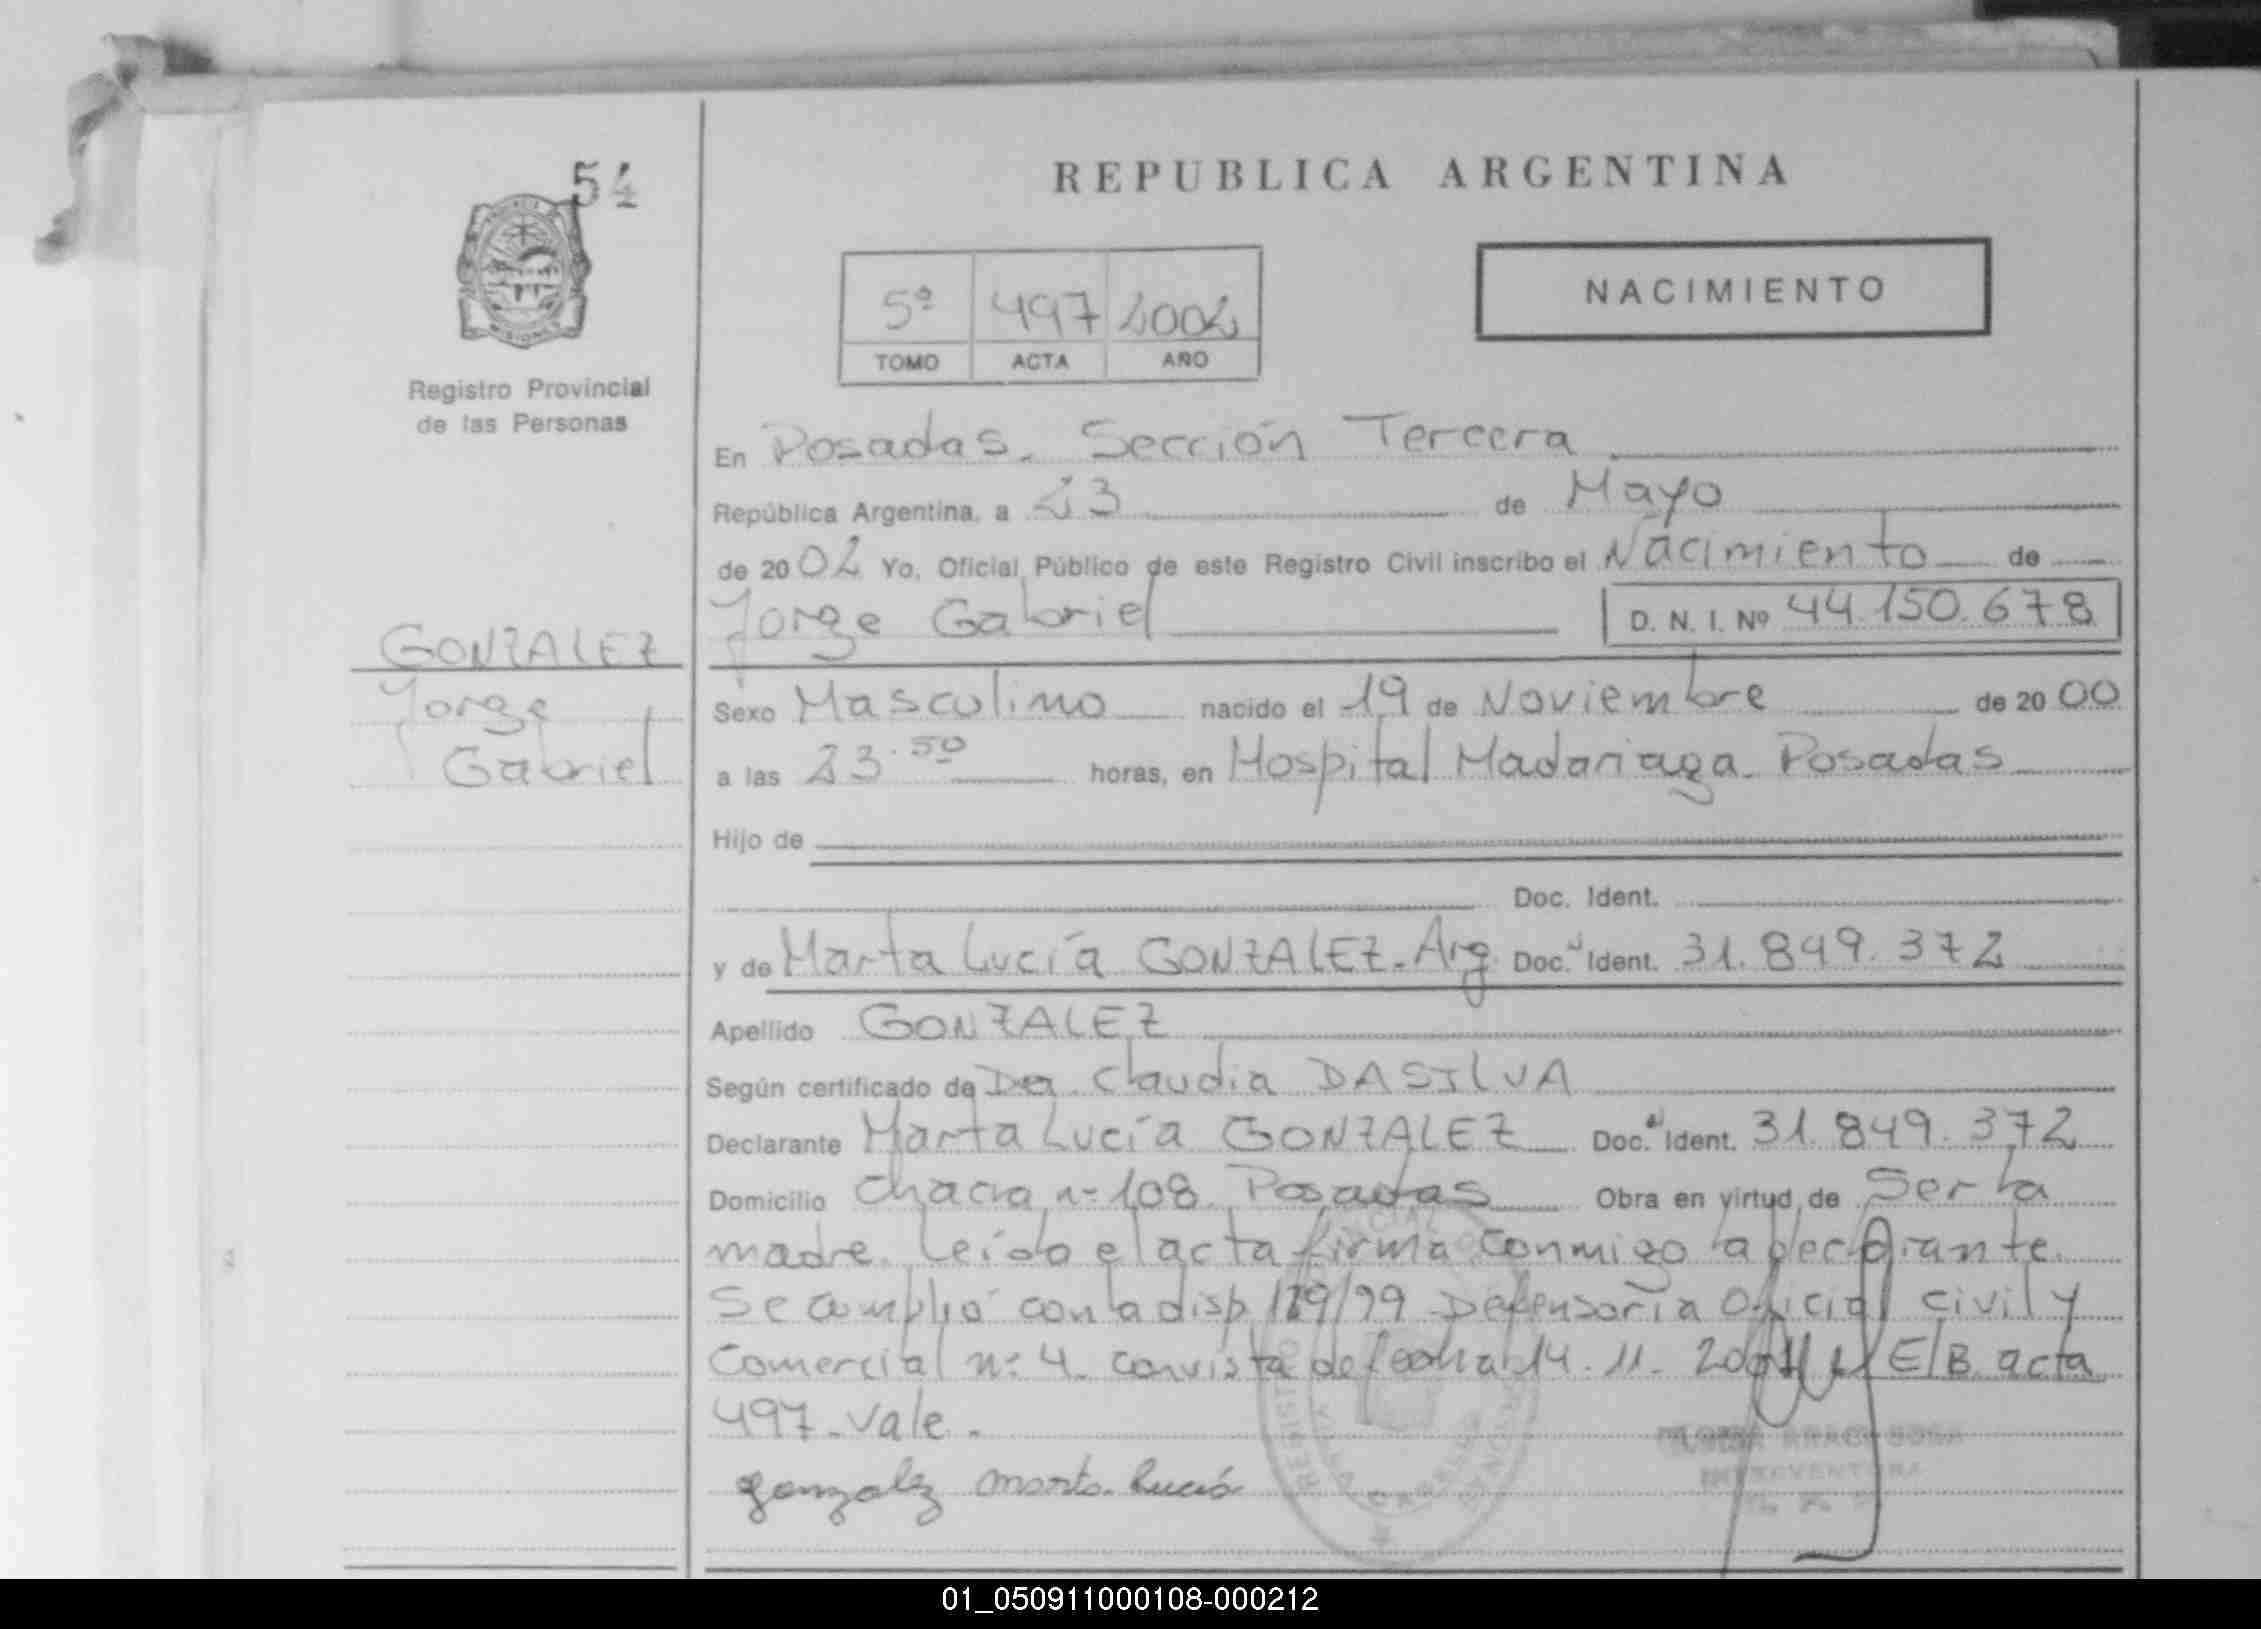 54
REPUBLICA ARGENTINA
NACIMIENTO
5º 497 2002
TOMO ACTA AÑO
MISIONES
Registro Provincial
de las Personas
En Posadas. Sección Tercera
República Argentina, a 23 de Mayo
de 2002 Yo, Oficial Público de este Registro Civil inscribo el Nacimiento de
Jorge Gabriel D. N. I. Nº 44.150.678
GONZALEZ
Jorge
Gabriel
Sexo Masculino nacido el 19 de Noviembre de 2000
a las 23.50 horas, en Hospital Madariaga Posadas
Hijo de
Doc. Ident.
y de Marta Lucía GONZALEZ. Arg. Doc. Ident. 31.849.372
Apellido GONZALEZ
Según certificado de Dra. Claudia DASILVA
Declarante Marta Lucía GONZALEZ Doc. Ident. 31.849.372
Domicilio Chacra nº 108 Posadas Obra en virtud de Ser la
madre. Leído el acta firma conmigo la declarante.
Se cumplió con la disp 129/99 Defensoría Oficial civil y
Comercial nº 4. con vista de fecha 14.11.2001 E/B. acta
497. vale.
gonzalez marta. Lucía
INTERVENTORA
01_050911000108-000212